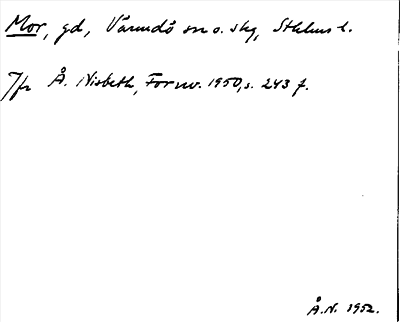 Mor, gd, Värmdö sn o. skg, Sthlms l.
Jfr Å. Nisbeth, Fornv. 1950, s. 243 f.
Å.N. 1952.